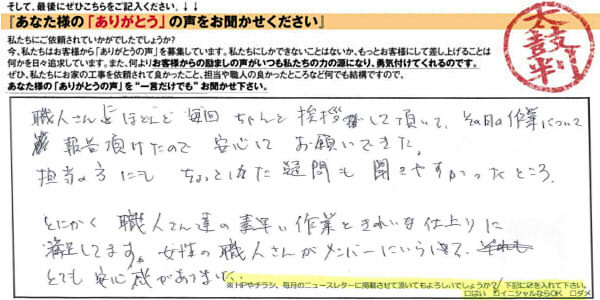 そして、最後にぜひこちらをご記入ください。↓↓
『あなた様の「ありがとう」の声をお聞かせください』
私たちにご依頼されていかがでしたでしょうか?
今、私たちはお客様から「ありがとうの声」を募集しています。私たちにしかできないことはないか、もっとお客様にして差し上げることは
何かを日々追求しています。また、何よりお客様からの励ましの声がいつも私たちの力の源になり、勇気付けてくれるのです。
ぜひ、私たちにお家の工事を依頼されて良かったこと、担当や職人の良かったところなど何でも結構ですので、
あなた様の「ありがとうの声」を"一言だけでも"お聞かせ下さい。
太鼓判
職人さんにほとんど毎回ちゃんと挨拶して頂いて、その日の作業について
報告頂けたので安心してお願いできた。
担当の方にもちょっとした疑問も聞きやすかったところ。
とにかく職人さん達の素早い作業ときれいな仕上りに
満足してます。女性の職人さんがメンバーにいらして、
とても安心感がありました。
※HPやチラシ、毎月のニュースレターに掲載させて頂いてもよろしいでしょうか?/下記に☑を入れて下さい。
□はい ☑イニシャルならOK □ダメ